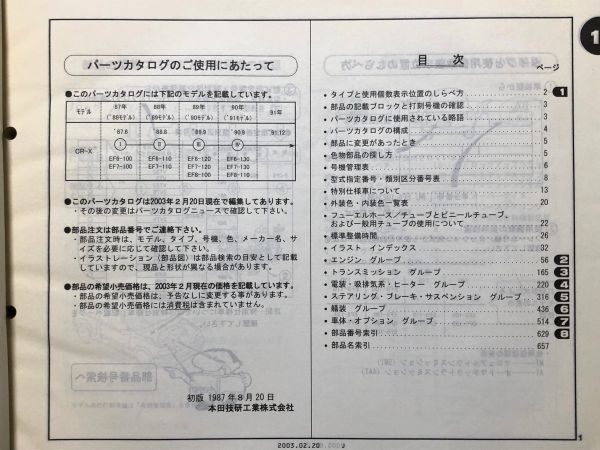 パーツカタログのご使用にあたって
●このパーツカタログには下記のモデルを記載しています。
モデル 87年 88年 89年 90年 91年
('88モデル) ('89モデル) ('90モデル) ('91モデル)
CR-X '87.8 '88.8 '89.9 '90.9 '91.12
Ⅰ Ⅱ Ⅲ Ⅳ
EF6-100 EF6-110 EF6-120 EF6-130
EF7-100 EF7-110 EF7-120 EF7-130
EF8-100 EF8-110
●このパーツカタログは2003年2月20日現在で編集してあります。
・その後の変更はパーツカタログニュースで確認して下さい。
●部品注文は部品番号でご連絡下さい。
・部品注文時は、モデル、タイプ、号機、色、メーカー名、サ
イズを必要に応じて確認して下さい。
・イラストレーション（部品図）は部品検索の目安として記載
していますので、現品と形状が異なる場合があります。
●部品の希望小売価格は、2003年2月現在の価格を記載しています。
・部品の希望小売価格は、予告なしに変更する事があります。
・部品の希望小売価格には消費税は含まれていません。
初版 1987年8月20日
本田技研工業株式会社
目 次
ページ
・タイプと使用個数表示位置のしらべ方 2 1
・部品の記載ブロックと打刻号機の確認 3
・パーツカタログに使用されている略語 3
・パーツカタログの構成 4
・部品に変更があったとき 5
・色物部品の探し方 5
・号機管理表 6
・型式指定番号・類別区分番号表 8
・特別仕様車について 13
・外装色・内装色一覧表 20
・フューエルホース／チューブとビニールチューブ、
および一般用チューブの使用について 22
・標準整備時間 26
・イラスト インデックス 32
・エンジン グループ 56 2
・トランスミッション グループ 165 3
・電装・吸排気系・ヒーター グループ 220 4
・ステアリング・ブレーキ・サスペンション グループ 316 5
・艤装 グループ 436 6
・車体・オプション グループ 514 7
・部品番号索引 629 8
・部品名索引 657
1
1
2003.02.20